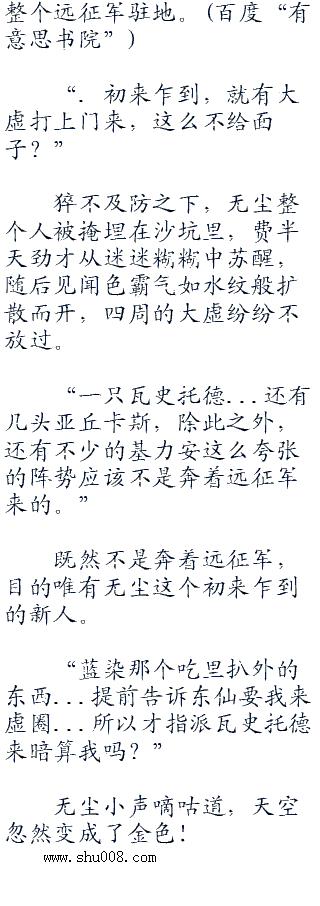 整个远征军驻地。(百度“有
意思书院”)
“. 初来乍到，就有大
虚打上门来，这么不给面
子？”
猝不及防之下，无尘整
个人被掩埋在沙坑里，费半
天劲才从迷迷糊糊中苏醒，
随后见闻色霸气如水纹般扩
散而开，四周的大虚纷纷不
放过。
“一只瓦史托德...还有
几头亚丘卡斯，除此之外，
还有不少的基力安这么夸张
的阵势应该不是奔着远征军
来的。”
既然不是奔着远征军，
目的唯有无尘这个初来乍到
的新人。
“蓝染那个吃里扒外的
东西...提前告诉东仙要我来
虚圈...所以才指派瓦史托德
来暗算我吗？”
无尘小声嘀咕道，天空
忽然变成了金色！
www.shu008.com